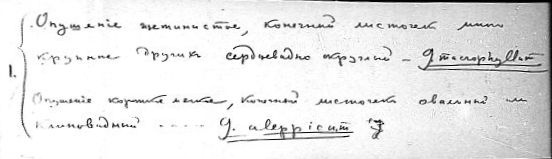 1. Опушеніе щетинистое, конечный листочек много
крупнее других сердцевидно округлый – G. macrophyllum
Опушеніе короткое мягкое, конечный листочек овальный или
клиновидный .... G. aleppicum